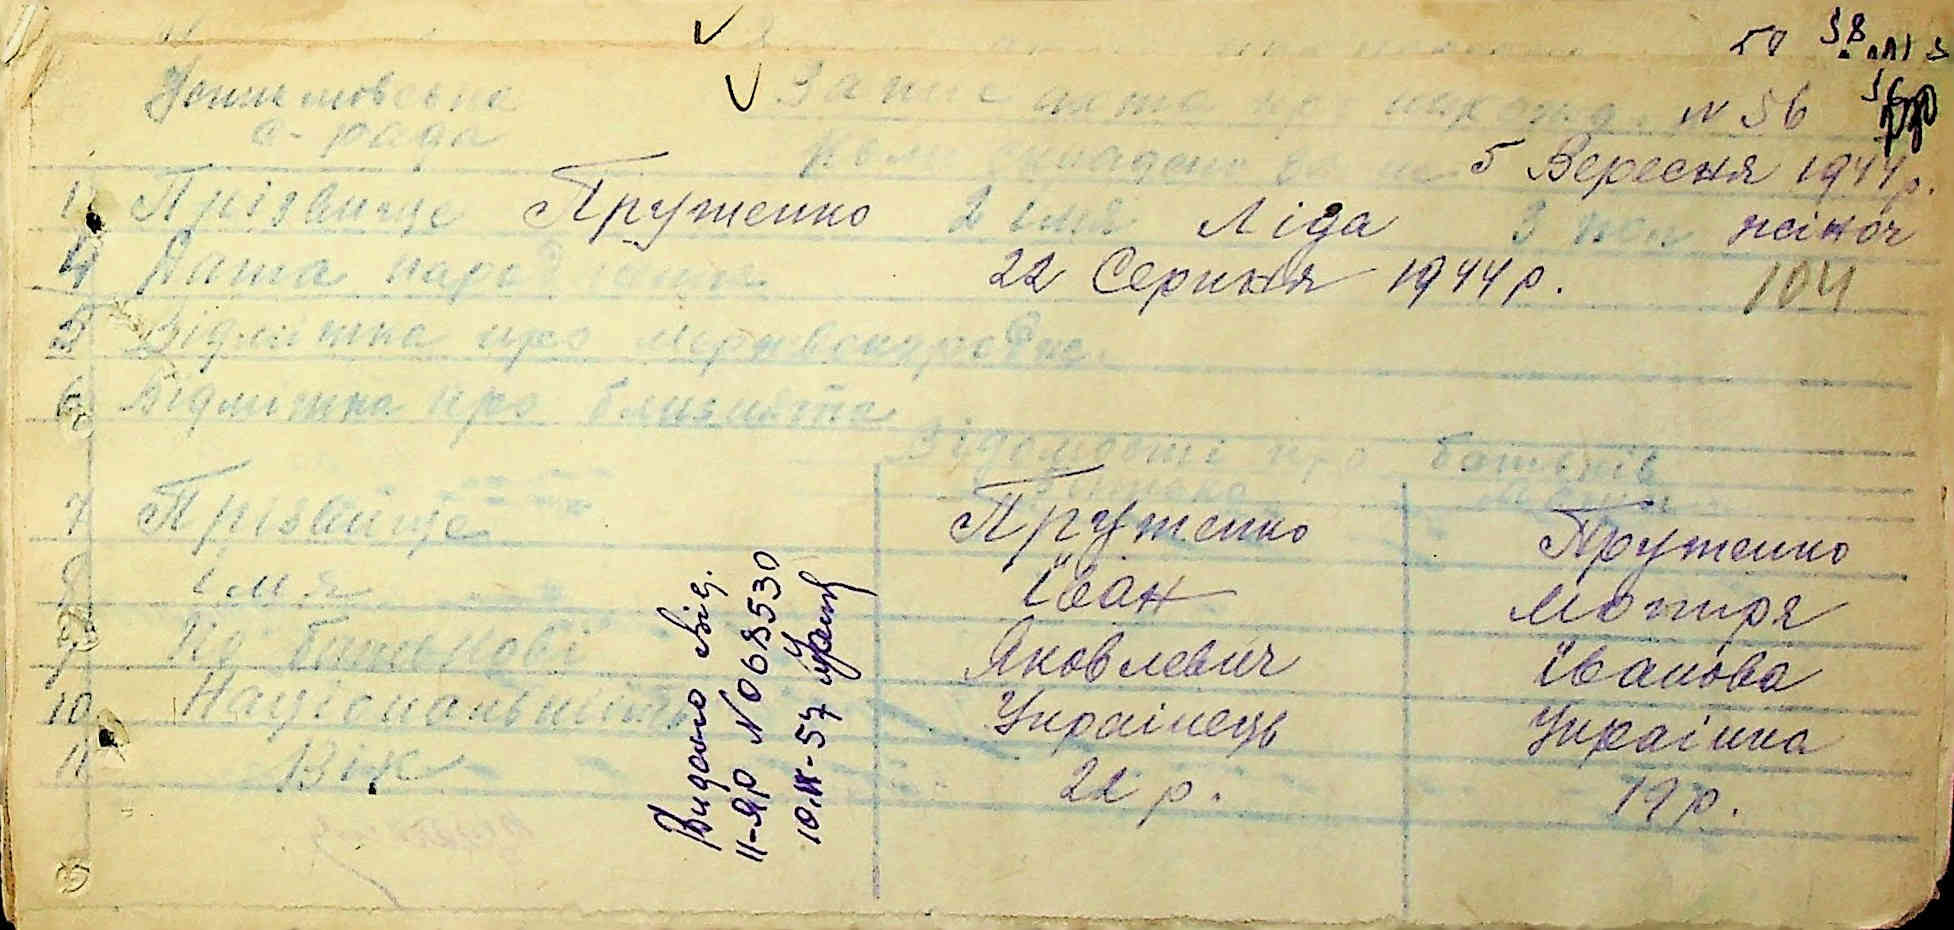 58
с-рада Запис акта про народж. N 56
Коли складено запис 5 Вересня 1944р.
1. Прізвище Пруженко 2 імя Ліда 3 пол жіноч
4 Дата народження 22 Серпня 1944р. 104
5 Відмітка про мертвонародже.
6 Відмітка про близнята
Відомості про батьків
Батько Мати
7 Прізвище Пруженко Пруженко
8 імя Іван Мотря
9 По батькові Яковлевич Іванова
10 Національність Українець Українка
11 Вік 22 р. 19 р.
Видано свід.
II-ЯР N 068530
10.IX-57